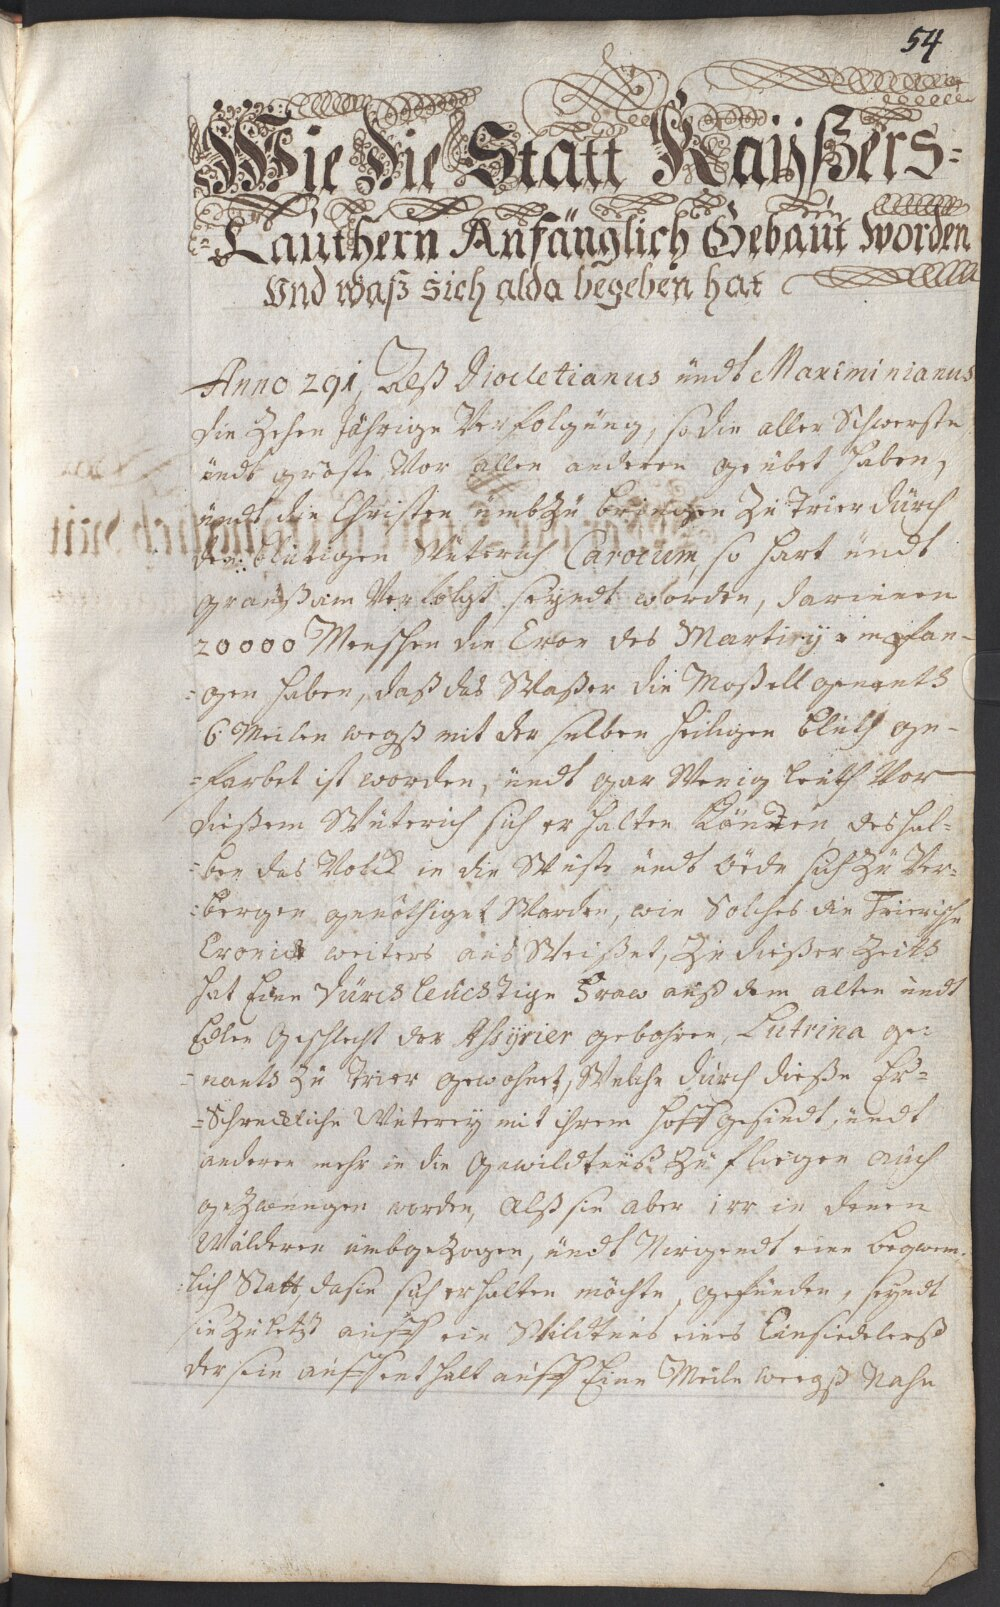 54
Wie die Statt Kaÿßers=
=Lauthern Anfänglich Gebaut worden
Und waß sich alda begeben hat
Anno 291, Alß Diocletianus undt Maximinianus
die Zehen Jährige Verfolgung, so die aller Schwerste
undt gröste Vor allen anderen geübet haben,
undt die Christen umbzubringen Zu Trier durch
den blutigen Wüterich so hart undt
graußam Verfolgt seyndt worden, darinnen
20000 Menschen die Cron des Martirÿ empfan-
=gen haben, daß das Waßer die Moßell genanth
6 Meilen wegß mit der selben heiligen bluth ge-
=farbet ist worden, undt gar Wenig leuth Vor
dießem Wüterich sich erhalten Könten deshal=
=ben das Volck in die Wüste undt öede sich Zu Ver=
=bergen genöthiget Worden, wie Solches die Trierische
Cronick weiters aus Weißet, Zu dießer Zeith
hat Eine Durchleuchtige Fraw auß dem alten undt
Edlen Geschlecht der Aßÿrier gebohren, Lutrina ge=
=nanth Zu Trier gewohnet, Welche durch dieße Er=
=Schreckliche Wüterey mit ihrem hoffgesindt, undt
anderen mehr in die Gewildtnüß Zu fliegen auch
gezwungen worden, Alß sie aber irr in denen
Wälderen umbgezogen, undt Nirgendt eine beqwem=
=lich Statt, da sie sich erhalten möchte, gefunden, seyndt
sie Zuletzt auff ein Wildtnus eines Einsiedelerß
der sein auffenthalt auff Eine Meile weegß Nahe